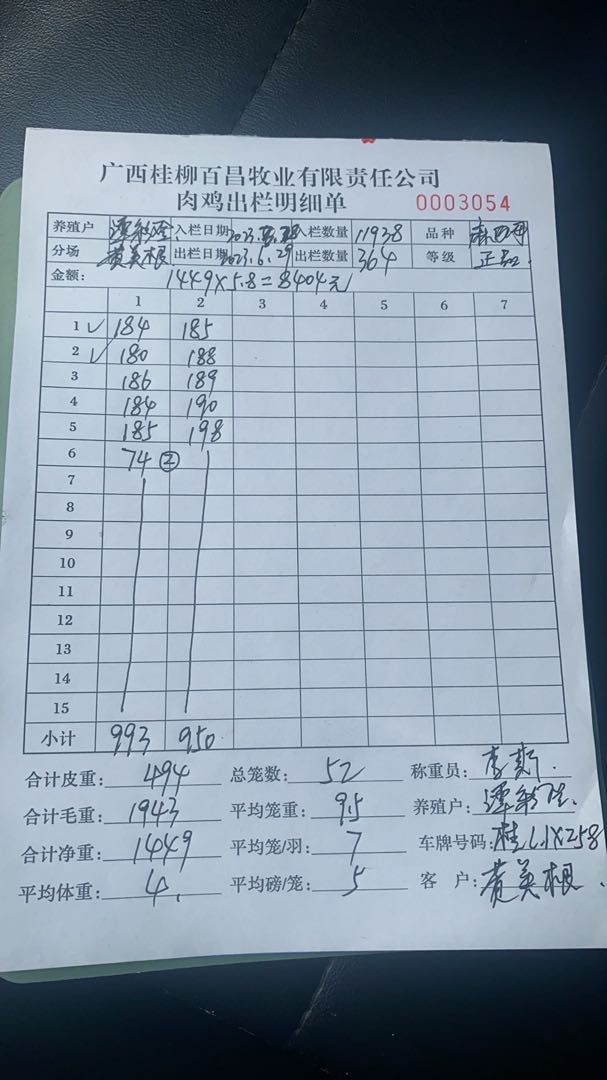 广西桂柳百昌牧业有限责任公司
肉鸡出栏明细单 0003054
养殖户 入栏日期 2023. 入栏数量 11938 品种
分场 黄英根 出栏日期 2023.6.29 出栏数量 364 等级 正品.
金额: 1449×5.8=8404元
1 2 3 4 5 6 7
1 ✓ 184 185
2 ✓ 180 188
3 186 189
4 184 190
5 185 198
6 74 ②
7
8
9
10
11
12
13
14
15
小计 993 950
合计皮重: 494 总笼数: 52 称重员: 李斯.
合计毛重: 1943 平均笼重: 9.5 养殖户:
合计净重: 1449 平均笼/羽: 7 车牌号码: 桂L1X258
平均体重: 4. 平均磅/笼: 5 客 户: 黄英根.